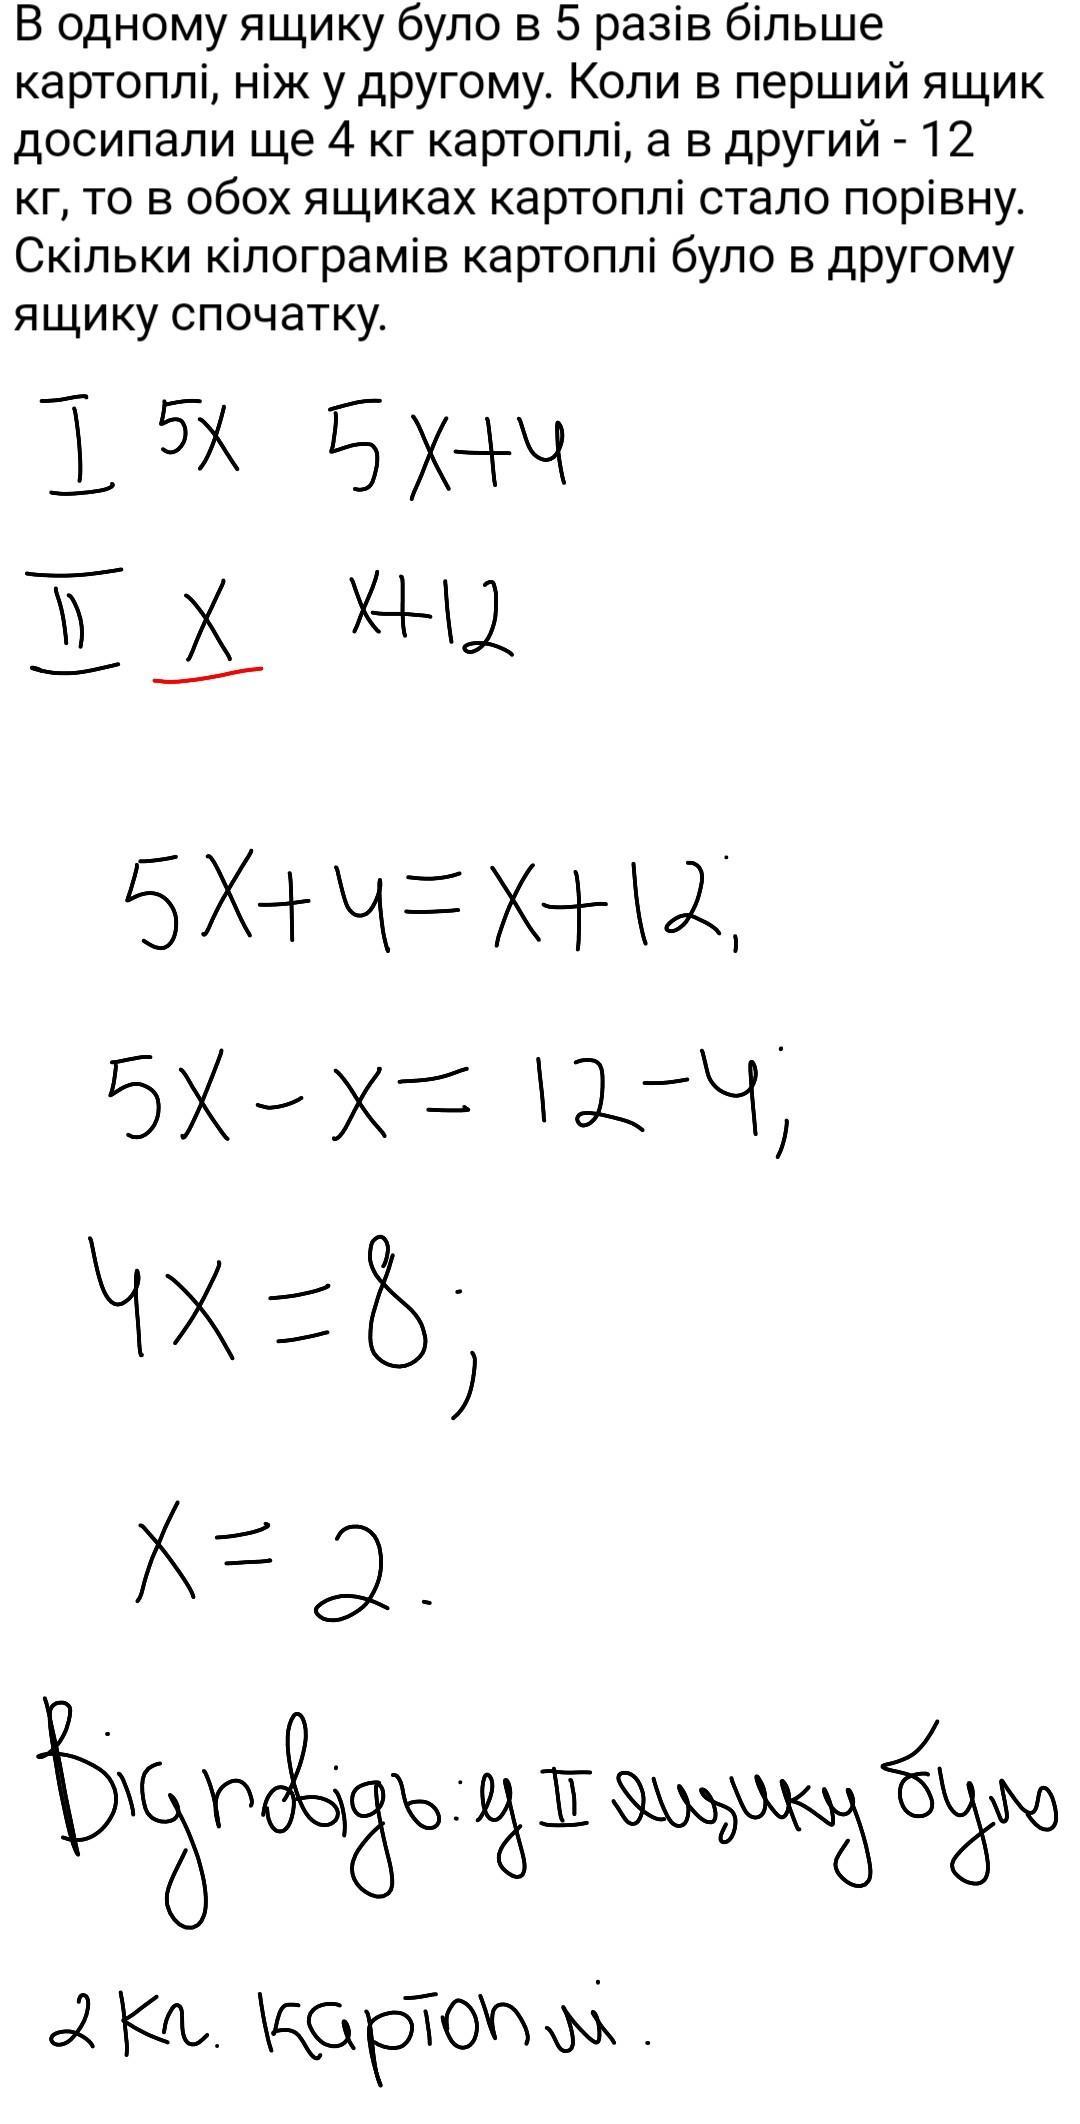 В одному ящику було в 5 разів більше
картоплі, ніж у другому. Коли в перший ящик
досипали ще 4 кг картоплі, а в другий - 12
кг, то в обох ящиках картоплі стало порівну.
Скільки кілограмів картоплі було в другому
ящику спочатку.
I 5x 5x+4
II x x+12
5x+4=x+12;
5x-x=12-4;
4x=8;
x=2.
Відповідь: у II ящику було
2 кг. картоплі.